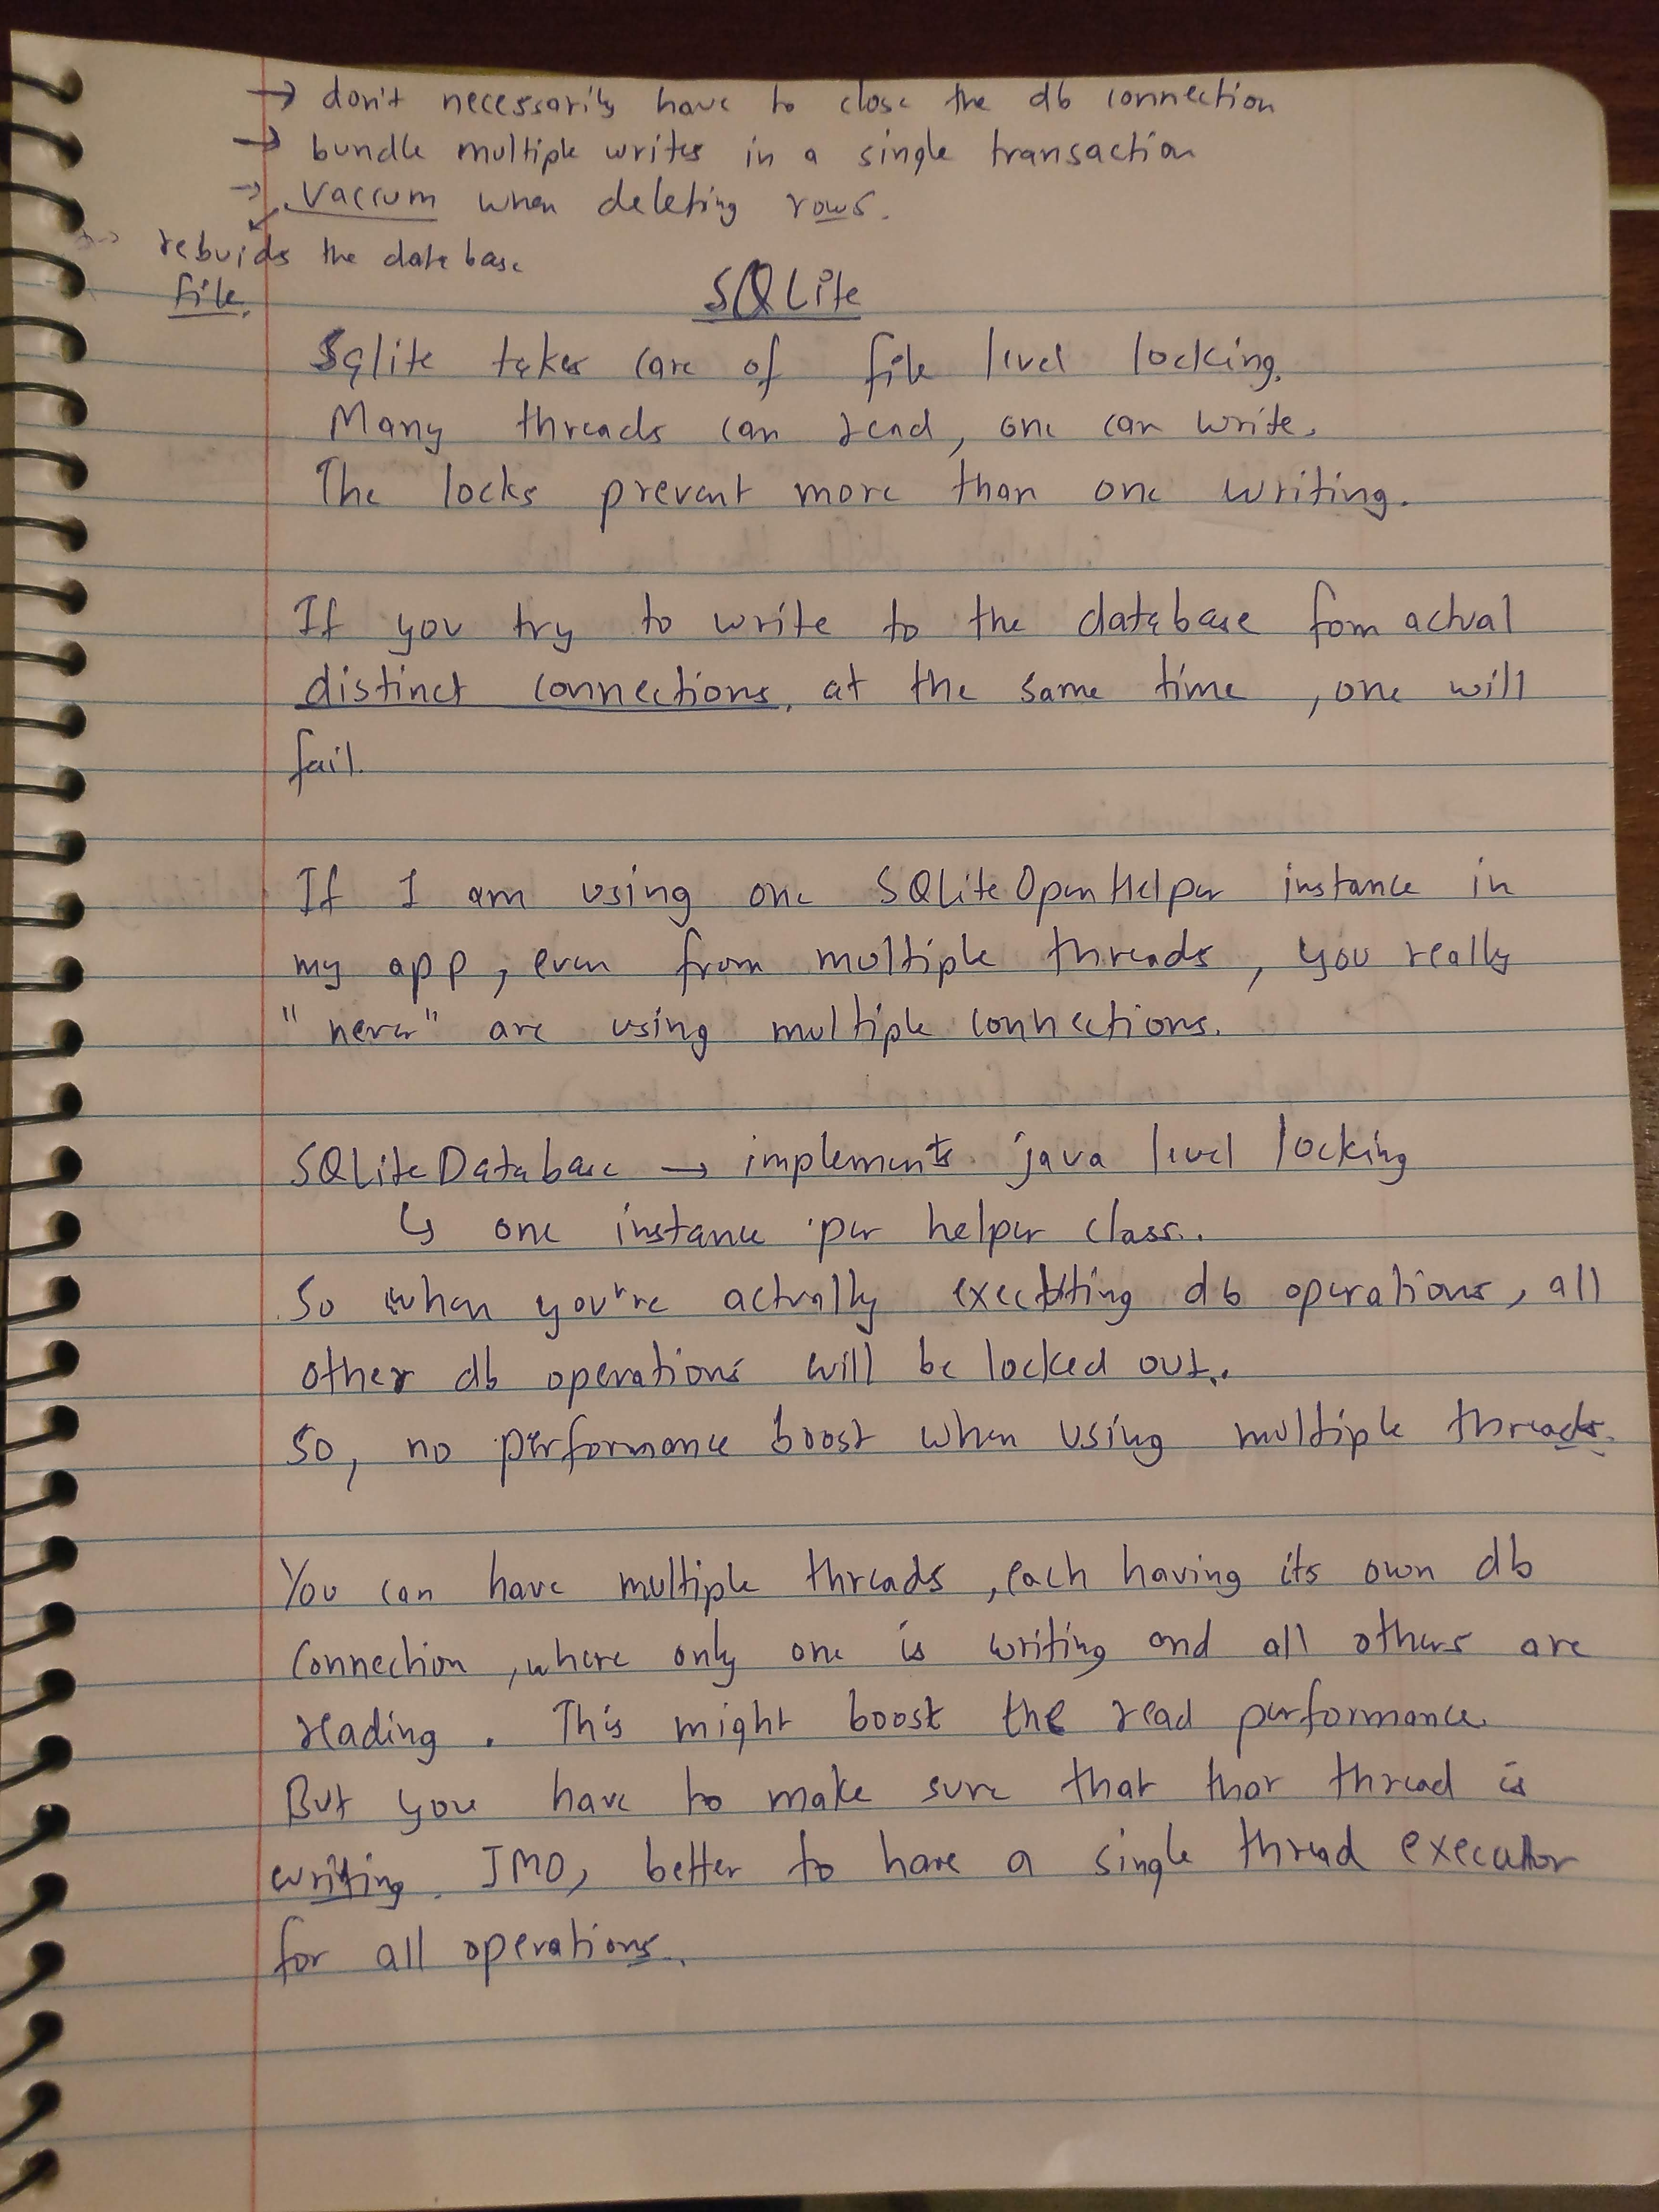 → don't necessarily have to close the db connection
→ bundle multiple writes in a single transaction
→ Vaccum when deleting rows.
rebuids the database
file.
SQLite
Sqlite takes care of file level locking.
Many threads can read, one can write.
The locks prevent more than one writing.
If you try to write to the database fom actual
distinct connections, at the same time , one will
fail.
If I am using one SQLiteOpenHelper instance in
my app, even from multiple threads, you really
"never" are using multiple connections.
SQLiteDatabase → implements java level locking
↳ one instance per helper class.
So when you're actually executing db operations, all
other db operations will be locked out.
So, no performance boost when using multiple threads.
You can have multiple threads, each having its own db
connection, where only one is writing and all others are
reading. This might boost the read performance.
But you have to make sure that that thread is
writing. IMO, better to have a single thread executor
for all operations.